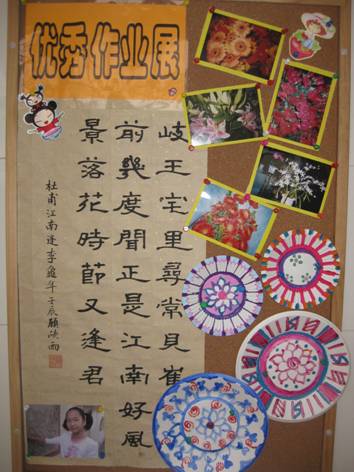 优秀作业展
岐王宅里尋常見崔
前幾度聞正是江南好風
景落花時節又逢君
杜甫江南逢李龜年壬辰